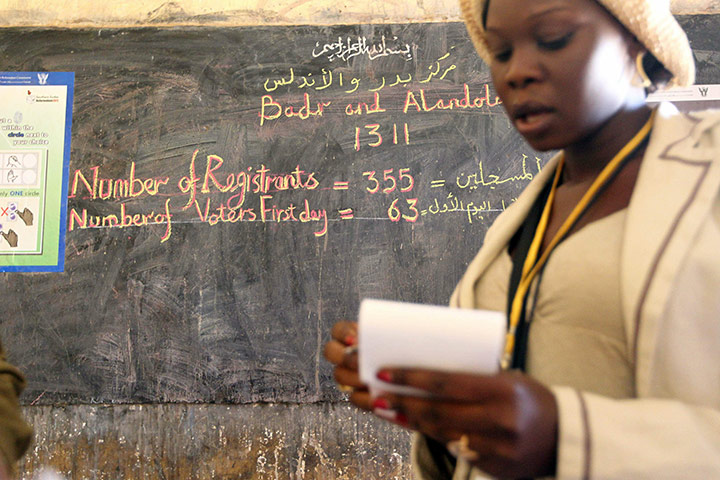 بسم الله الرحمن الرحيم
مركز بدر والأندلس
Badr and Alandols
1311
Number of Registrants = 355 = المسجلين
Number of Voters First day = 63 = اليوم الأول
within the
circle next to
your choice
only ONE circle